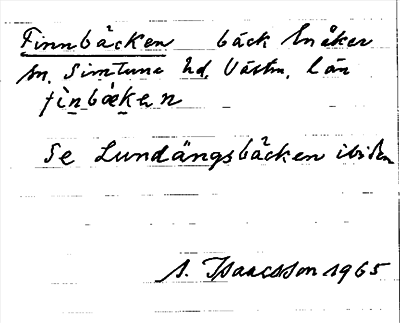 Finnbäcken bäck Enåker
sn. Simtuna hd. Västm. län
fìnbæ̀ken
Se Lundängsbäcken ibiden
S. Isaacsson 1965